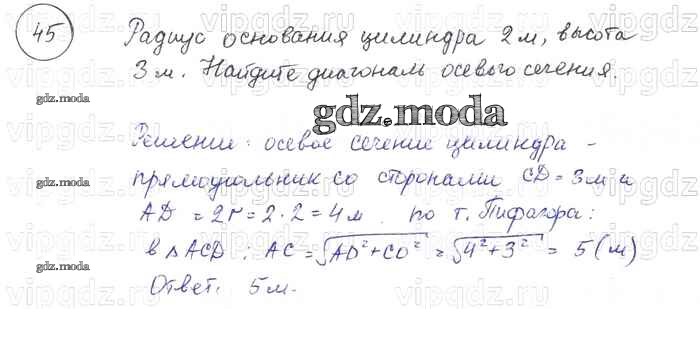 45
Радиус основания цилиндра 2 м, высота
3 м. Найдите диагональ осевого сечения.
gdz.moda
gdz.moda
Решение: осевое сечение цилиндра -
прямоугольник со сторонами CD = 3 м и
gdz.moda
AD = 2r = 2·2 = 4 м. по т. Пифагора:
в △ACD: AC = √AD²+CD² = √4²+3² = 5 (м)
gdz.moda
Ответ: 5 м.
vipgdz